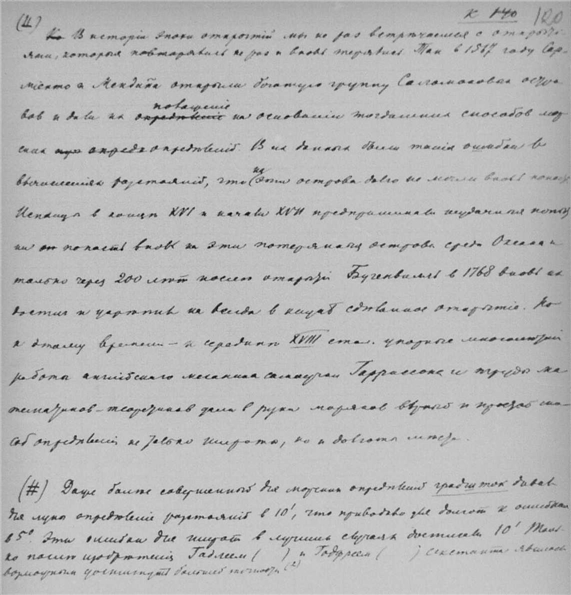 к 120
(#) В исторіи эпохи открытій мы не разъ встрѣчаемся с открыті-
ями, которыя повторялись не раз и вновь терялись. Так в 1567 году Сар-
міенто и Менданa открыли богатую группу Саломоновых остро-
вов и дали их положеніе на основаніи тогдашних способов мор-
ских опредѣленій. В их данных были такія ошибки в
вычисленіях разстояній, что эти острова долго не могли вновь
Испанцы в конце XVI и начале XVII предпринимали неудачныя попыт-
ки попасть вновь на эти потерянныя острова среди Океана и
только через 200 лѣт послѣ открытія Бугенвилль в 1768 вновь их
достиг и на всегда в науке сдѣланное открытіе. Но
к этому времени – к середине XVIII упорныя многолетнія
работы англійскаго механика самоучки Гаррисона и труды ма-
тематиков-теоретиков дали в руки моряков вѣрный и простой спо-
соб опредѣленія не только широты, но и долготы мѣста.
(#) Даже более совершенный для морских опредѣленій градшток давал
для луны опредѣленіе разстояній в 10', что приводило для долгот к ошибкам
в 5°. Эти ошибки для широт в лучших случаях достигали 10' Толь-
ко после изобретенія Гадлеем ( ) и Годфреем ( ) секстанта явилось
возможным достигнуть большей точности (2)